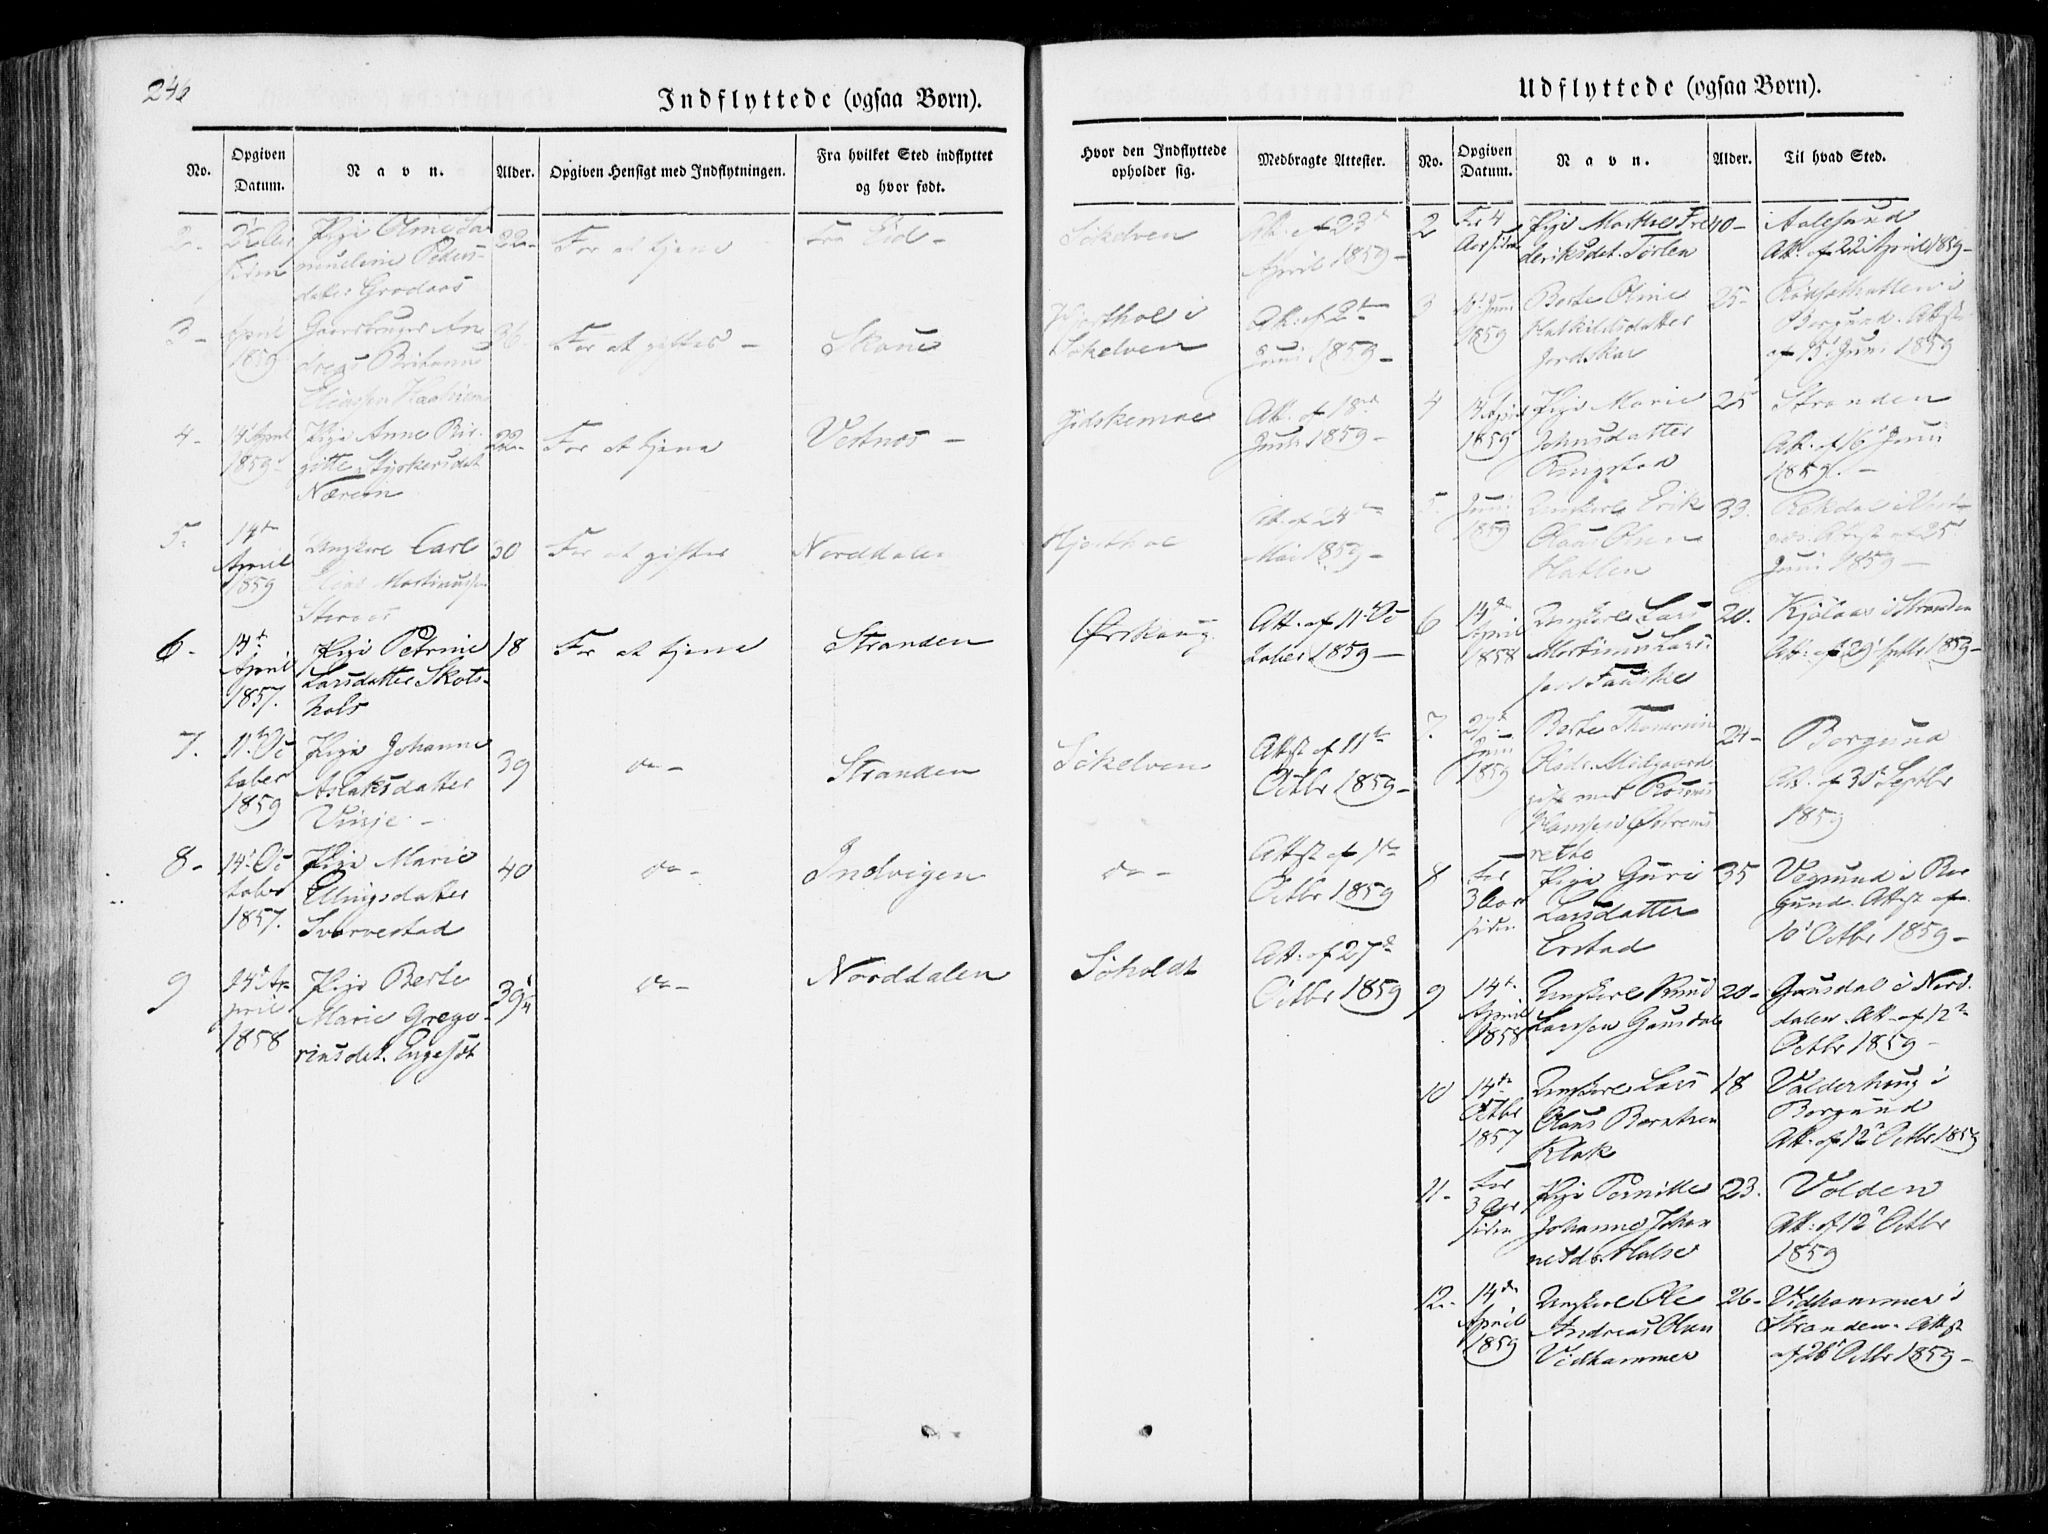 246
Indflyttede (ogsaa Børn).
No.
Opgiven Datum.
Navn.
Alder.
Opgiven Hensigt med Indflytningen.
Fra hvilket Sted indflyttet og hvor født.
Hvor den Indflyttede opholder sig.
Medbragte Attester.
2-
siden
Pige Oline Sa
muelene Peders-
datter Grodaas
22-
For at tjene
Fra Eid-
Sökelven
Att. af 23de
April 1859-
3-
April
1859
Gaardbruger An
dreas
36-
For at giftes-
Skoue
Hjorthol i
Sökelven
Att. af 2den
Juni 1859-
4-
14 April
1859
Pige Anne Bir-
gitte
Nærem
22-
For at tjene
Vestnes-
Gidskemoe
Att. af 18de
Juni 1859-
5-
14de
April
1859
Ungkarl Carl
Elias Martinussen
30
For at giftes
Norddalen
Hjorthol
Att. af 24de
Mai 1859-
6-
14de
April
1857.
Pige Petrine
Larsdatter Skots-
hols
18
For at tjene
Stranden
Ørskoug
Att. af 11 Oc
tober 1859-
7.
11te Oc
tober
1859
Pige Johanne
Aslaksdatter
Vinje-
39
do-
Stranden
Sökelven
Attst af 11te
Octbr 1859-
8-
14 Oc
tober
1857.
Pige Marie
Ellingsdatter
Svorvestad
40
do-
Indvigen
do-
Attst af 1te
Octbr 1859
9
14 Ap
pril
1858
Pige Berte
Marie Grego-
riusdat. Engeset
39¼
do-
Norddalen
Söholdt
Att. af 27de
Octbr 1859
Udflyttede (ogsaa Børn).
No.
Opgiven Datum.
Navn.
Alder.
Til hvad Sted.
2
For 4
Aar siden
Pige Marthe Fre
deriksdat. Tørlen
40-
i Aalesund
Att. af 22 April 1859-
3
Juni
1859
Berte Oline
datter
Jordskar
25-
i
Borgund. Attst
af 15 Juni 1859
4
14 April
1859
Pige Marie
Johnsdatter
Ringstad
25
Stranden
Att. af 16 Juni
1859.-
5-
Juni
1859
Ungkarl Erik
Olaus Olsen
Hatlen
33.
Rekdal i Vest-
nes. Attst af 25
Juni 1859-
6
14de
April
1858
Ungkarl Lars
Martinus Lars-
sen Fauske
20.
Kjølaas i Stranden
Att. af 29 Septbr 1859-
7.
27de
Juni
1859
Berte Thomasine
Olsdr. Midgaard
gift med Rasmus
Hansen
24-
Borgund
Att. af 30 Septbr
1859
8
For
3 Aar
siden
Pige Guri
Larsdatter
Erstad
35
Vegsund i Bor
gund. Attst af
10 Octbr 1859-
9
14de
April
1858
Ungkarl Knud
Larssen Gausdal
20-
Gausdal i Nord-
dalen. Att. af 12te
Octbr 1859-
10
14de
Octbr
1857
Ungkarl Lars
Olaus Berntsen
Klok
18
Valderhoug i
Borgund
Att. af 12 Octbr 1859
11-
For
3 Aar
siden
Pige Pernille
Johanne Johan
nesd. Halse
23.
Volden
Att. af 12 Octbr
1859
12-
14de
April
1859
Ungkarl Ole
Andreas Olsen
Vidhammer
26-
Vidhammer i
Stranden. Attst
af 26 Octbr 1859-